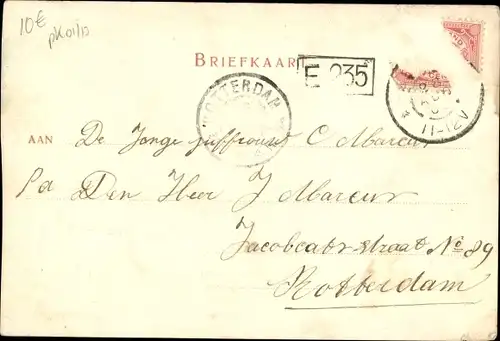 10€
BRIEFKAAR
E 235
ROTTERDAM
11-12V
AAN De Jonge juffrouw C Marcus
p/a Den Heer J Marcus
Jacobcatsstraat No 89
Rotterdam